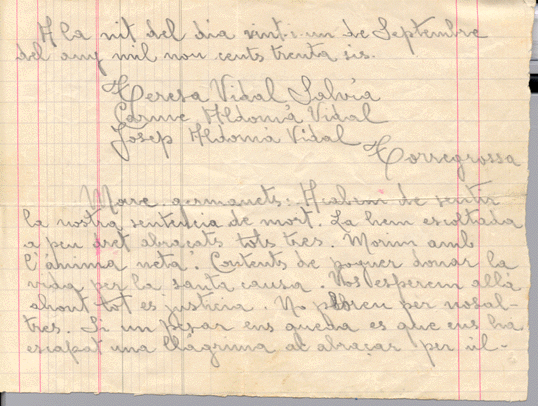 A la nit del dia vint-i-un de Septembre
del any mil nou cents trenta sis.
Teresa Vidal Salvia
Carme Aldomà Vidal
Josep Aldomà Vidal
Torregrossa
Mare, germanets: Acabem de sentir
la nostra sentencia de mort. La hem escoltada
a peu dret abraçats tots tres. Morim amb
l'ánima neta. Contents de poguer donar la
vida per la santa causa. Vos esperem allá
ahont tot es justicia. No ploreu per nosal-
tres. Si un pesar ens queda es que ens ha
escapat una llágrima al abraçar per úl-